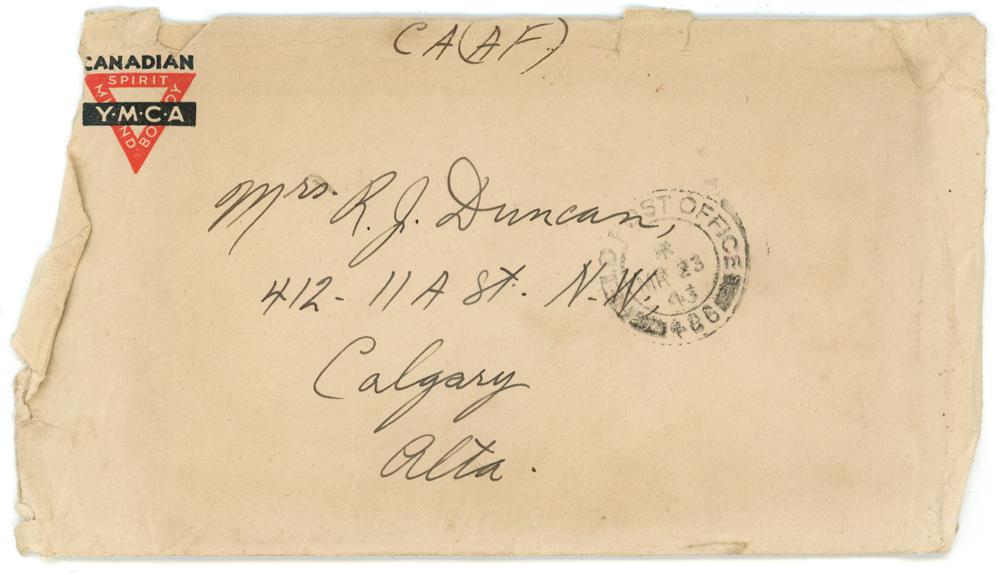 CA(AF)
CANADIAN
SPIRIT
MIND
BODY
Y·M·C·A
Mrs. R. J. Duncan,
412 - 11 A St. N.W.,
Calgary
Alta.
POST OFFICE
MR 23
43
486